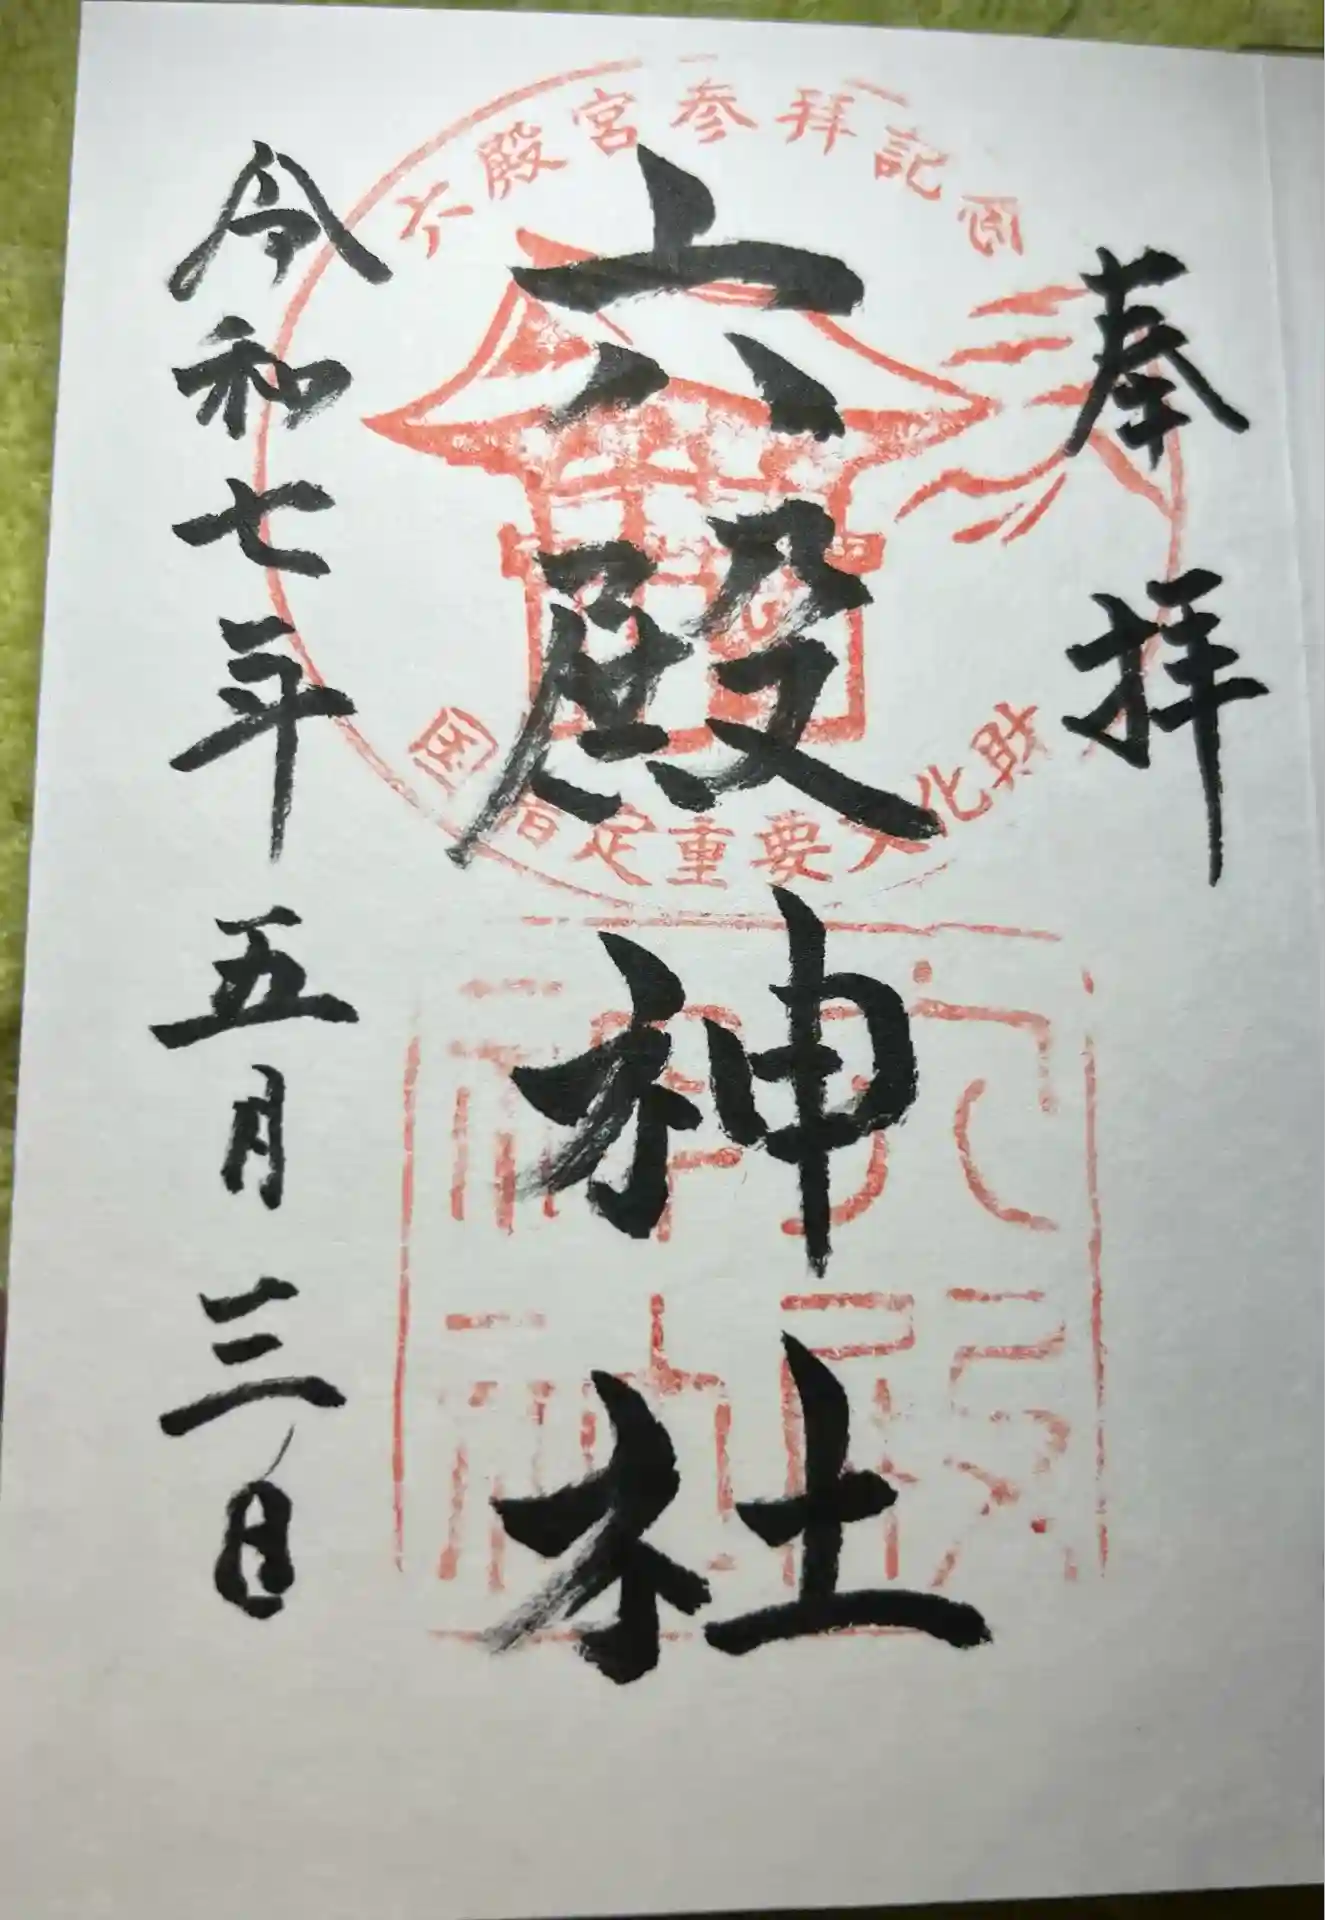 奉拝
六殿神社
令和七年五月三日
六殿宮参拝記念
国指定重要文化財